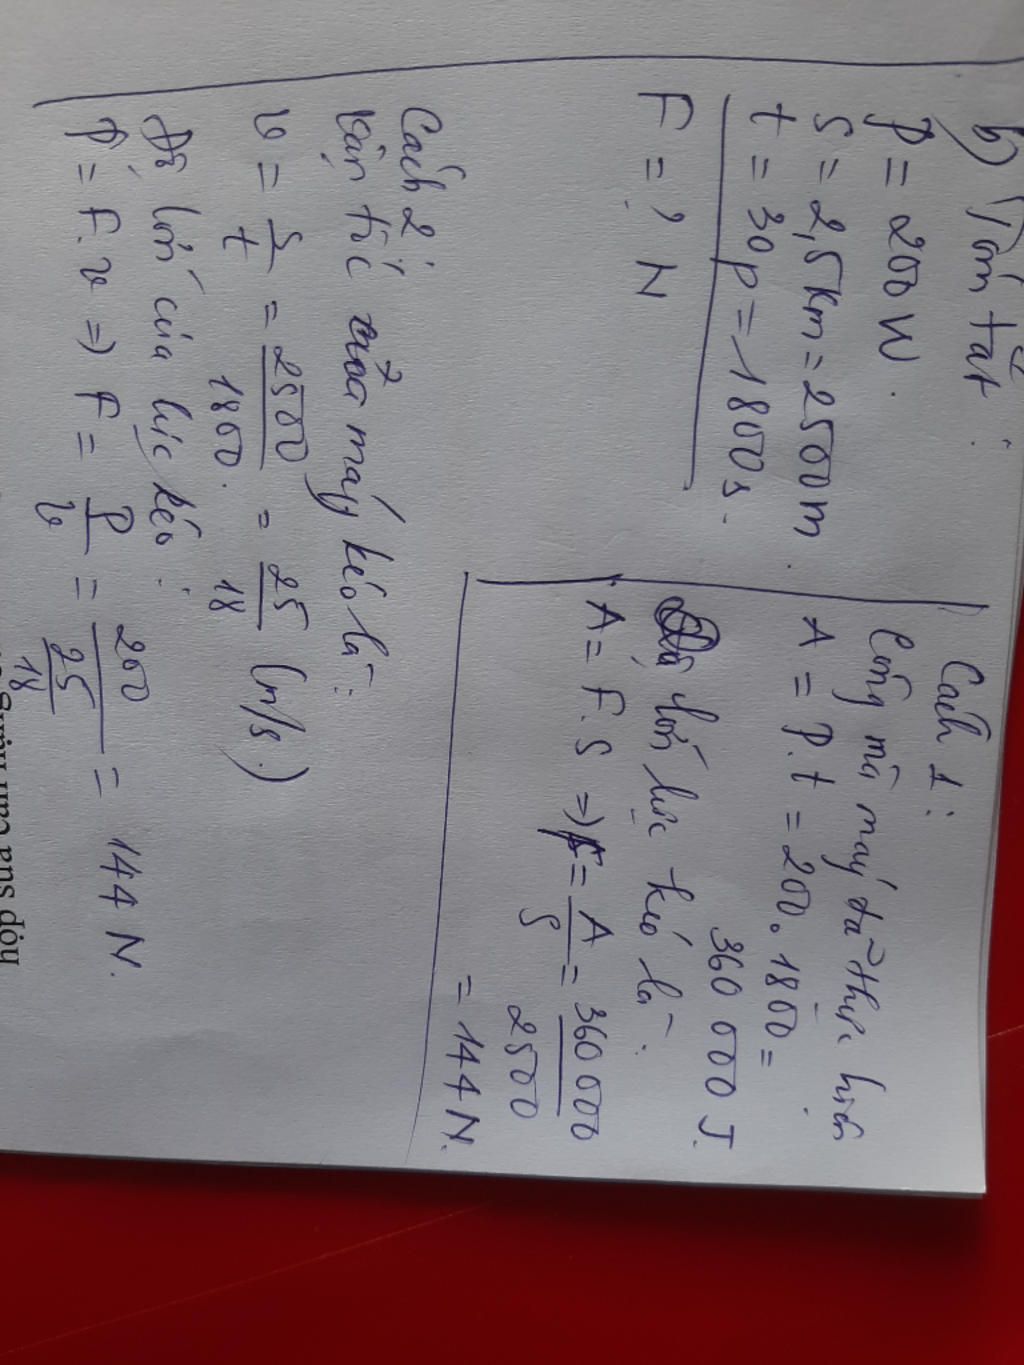 b) Tóm tắt:
P = 200 W.
S = 2,5km = 2500m
t = 30p = 1800s.
F = ? N
Cách 1:
Công mà máy đã thực hiện
A = P.t = 200.1800 =
360 000 J.
Độ lớn lực kéo là:
A = F.S => F = A/S = 360000/2500
= 144N.
Cách 2
Vận tốc của máy kéo là:
v = S/t = 2500/1800. = 25/18 (m/s.)
Độ lớn của lực kéo:
P = F.v => F = P/v = 200/(25/18) = 144 N.
hộp sữa